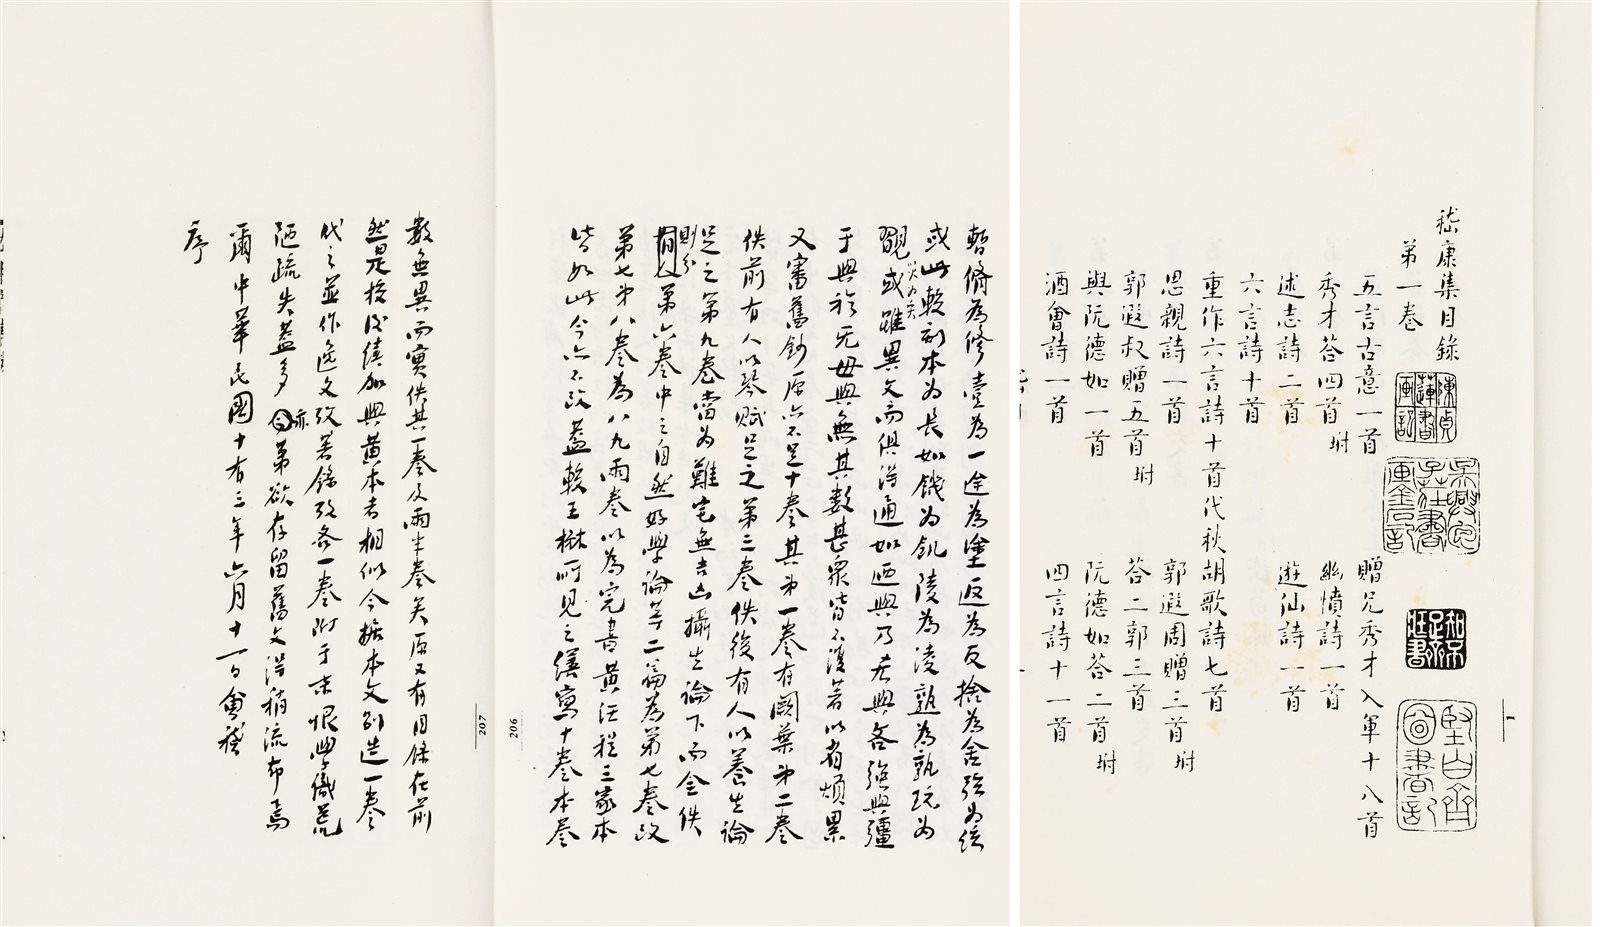 嵇康集目錄
第一卷
五言古意一首 贈兄秀才入軍十八首
秀才荅四首附 幽憤詩一首
述志詩二首 遊仙詩一首
六言詩十首
重作六言詩十首代秋胡歌詩七首
思親詩一首 郭遐周贈三首附
郭遐叔贈五首附 荅二郭三首
與阮德如一首 阮德如荅二首附
酒會詩一首 四言詩十一首
陳貞蓮書畫記
吳興包子莊書畫金石記
堅白齋圖書記
一
暫脩為修壹為一途為塗返為反捨為舍弦為絃
或此較刻本為長如饑為飢陵為淩熟為孰玩為
翫或雖異文而俱得通如迺與乃 與 强與彊
于與於无毋與無其數甚眾皆不復著以省煩累
又審舊鈔原亦不足十卷其第一卷有闕葉第二卷
佚前有人以琴賦足之第三卷佚後有人以養生論
足之第九卷當為難宅無吉凶攝生論下而全佚
則分第六卷中之自然好學論等二篇為第七卷改
第七第八卷為八九兩卷以為完書黃汪程三家本
皆如此今亦不改蓋較王楙所見之繕寫十卷本卷
206
207
數無異而實佚其一卷及兩半卷矣原又有目錄在前
然是校後續加與黃本者相似今據本文別造一卷
代之並作逸文攷著錄攷各一卷附于末恨學識荒
陋疏失蓋多亦第欲存留舊文得稍流布焉
爾中華民國十有三年六月十一日會稽
序